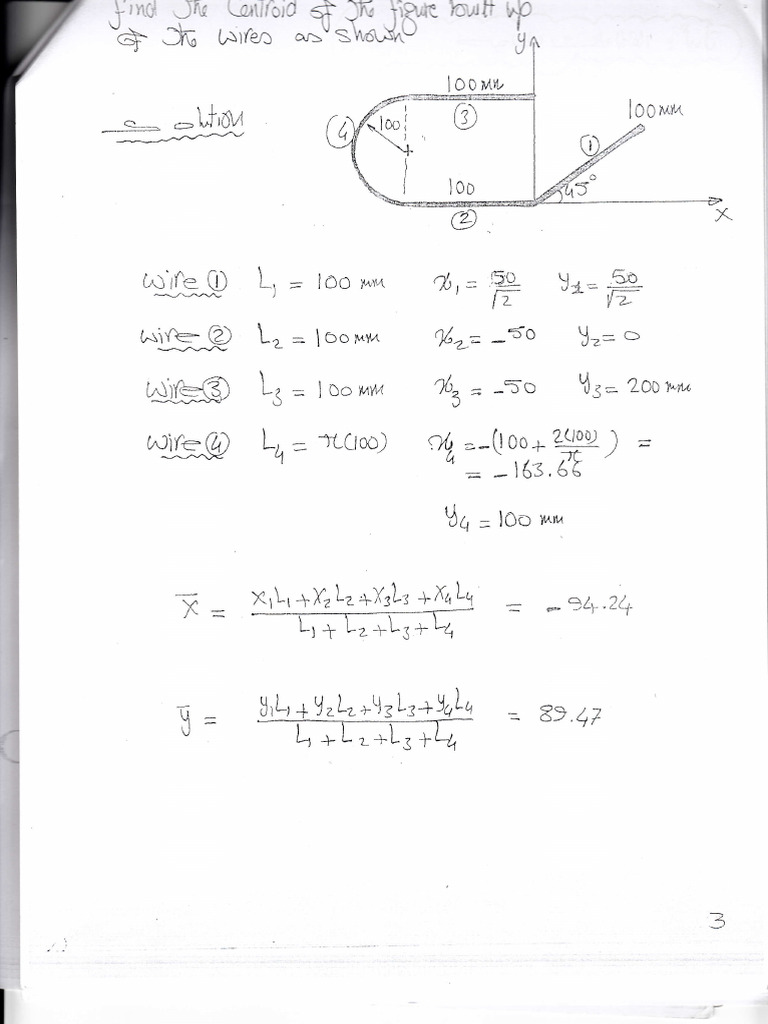 find the Centroid of the figure built up
of the wires as shown
y
100 mm
3
4
100
100 mm
1
45°
Solution
100
2
x
wire 1 L1 = 100 mm x1 = 50/√2 y1 = 50/√2
wire 2 L2 = 100 mm x2 = -50 y2 = 0
wire 3 L3 = 100 mm x3 = -50 y3 = 200 mm
wire 4 L4 = π(100) x4 = -(100 + 2(100)/π) =
= -163.66
y4 = 100 mm
x̄ = (x1L1 + x2L2 + x3L3 + x4L4)/(L1 + L2 + L3 + L4) = -94.24
ȳ = (y1L1 + y2L2 + y3L3 + y4L4)/(L1 + L2 + L3 + L4) = 89.47
3